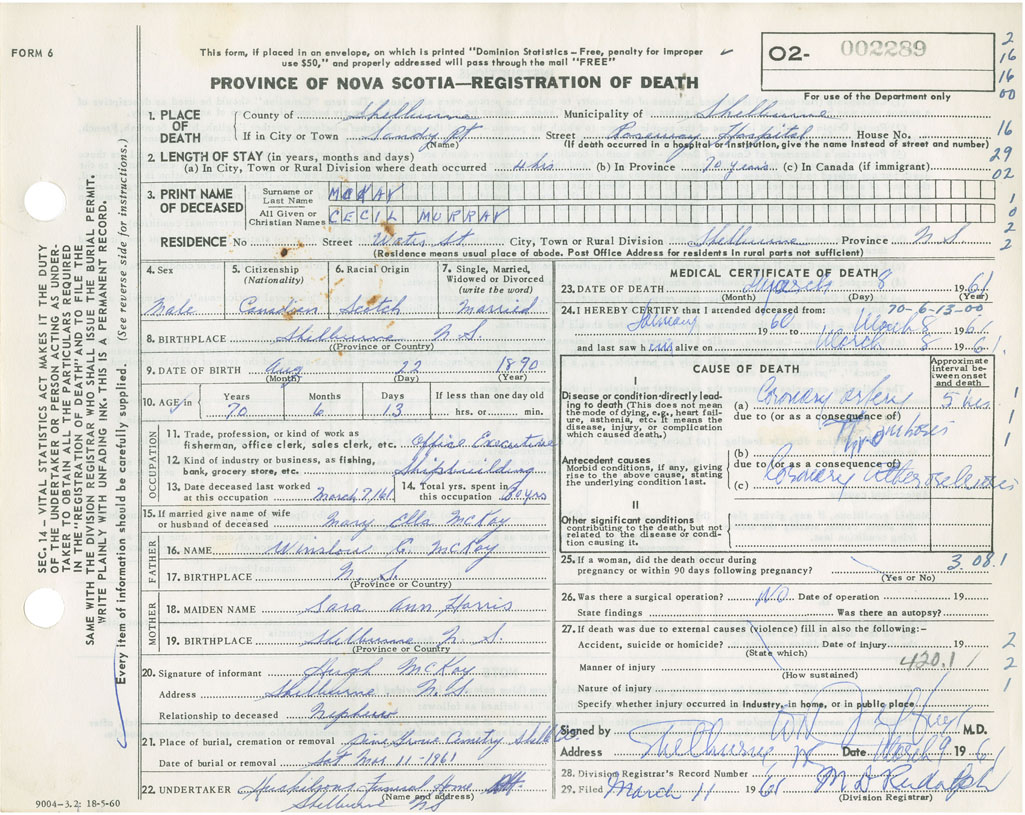 FORM 6
This form, if placed in an envelope, on which is printed "Dominion Statistics – Free, penalty for improper
use $50," and properly addressed will pass through the mail "FREE"
PROVINCE OF NOVA SCOTIA—REGISTRATION OF DEATH
02- 002289
For use of the Department only
2
16
16
00
16
29
02
1
0
2
2
SEC. 14 – VITAL STATISTICS ACT MAKES IT THE DUTY
OF THE UNDERTAKER OR PERSON ACTING AS UNDER-
TAKER TO OBTAIN ALL THE PARTICULARS REQUIRED
IN THE "REGISTRATION OF DEATH" AND TO FILE THE
SAME WITH THE DIVISION REGISTRAR WHO SHALL ISSUE THE BURIAL PERMIT.
WRITE PLAINLY WITH UNFADING INK. THIS IS A PERMANENT RECORD.
Every item of information should be carefully supplied. (See reverse side for instructions.)
1. PLACE OF DEATH
County of Shelburne Municipality of Shelburne
If in City or Town Sandy Pt Street Roseway Hospital House No.
(Name) (If death occurred in a hospital or institution, give the name instead of street and number)
2. LENGTH OF STAY (in years, months and days)
(a) In City, Town or Rural Division where death occurred 4 hrs. (b) In Province 70 years (c) In Canada (if immigrant)
3. PRINT NAME OF DECEASED
Surname or Last Name MCKAY
All Given or Christian Names CECIL MURRAY
RESIDENCE No Street Water St City, Town or Rural Division Shelburne Province N S
(Residence means usual place of abode. Post Office Address for residents in rural parts not sufficient)
4. Sex Male
5. Citizenship (Nationality) Canadian
6. Racial Origin Scotch
7. Single, Married, Widowed or Divorced (write the word) Married
8. BIRTHPLACE Shelburne N S.
(Province or Country)
9. DATE OF BIRTH Aug 22 1890
(Month) (Day) (Year)
10. AGE Years 70 Months 6 Days 13 If less than one day old hrs. or min.
OCCUPATION
11. Trade, profession, or kind of work as
fisherman, office clerk, sales clerk, etc. Office Executive
12. Kind of industry or business, as fishing,
bank, grocery store, etc. Shipbuilding
13. Date deceased last worked at this occupation March 7/61
14. Total yrs. spent in this occupation 50 yrs
15. If married give name of wife
or husband of deceased Mary Ella McKay
FATHER
16. NAME Winslow C. McKay
17. BIRTHPLACE N. S.
(Province or Country)
MOTHER
18. MAIDEN NAME Sara Ann Harris
19. BIRTHPLACE Shelburne N. S.
(Province or Country)
20. Signature of informant Hugh McKay
Address Shelburne N.S
Relationship to deceased Nephew
21. Place of burial, cremation or removal Pine Grove Cemetry Shelburne
Date of burial or removal Sat Mar 11-1961
22. UNDERTAKER Huskilson's Funeral Home
(Name and address)
Shelburne NS
9004-3.2: 18-5-60
MEDICAL CERTIFICATE OF DEATH
23. DATE OF DEATH March 8 1961
(Month) (Day) (Year)
70-6-13-00
24. I HEREBY CERTIFY that I attended deceased from:
January 1960 to March 8 1961
and last saw him alive on March 8 1961.
CAUSE OF DEATH
Approximate interval between onset and death
I
Disease or condition directly leading to death (This does not mean the mode of dying, e.g., heart failure, asthenia, etc. It means the disease, injury, or complication which caused death.)
(a) Coronary artery 5 hrs
due to (or as a consequence of)
Thrombosis
Antecedent causes
Morbid conditions, if any, giving rise to the above cause, stating the underlying condition last.
(b)
due to (or as a consequence of)
(c) Coronary Atherosclerosis
II
Other significant conditions
contributing to the death, but not related to the disease or condition causing it.
1
1
1
25. If a woman, did the death occur during
pregnancy or within 90 days following pregnancy? 3.081
(Yes or No)
26. Was there a surgical operation? NO Date of operation 19
State findings Was there an autopsy?
27. If death was due to external causes (violence) fill in also the following:–
Accident, suicide or homicide? Date of injury 19
(State which)
420.1
Manner of injury
(How sustained)
Nature of injury
Specify whether injury occurred in industry, in home, or in public place
2
2
1
Signed by M.D.
Address Shelburne NS Date March 9 1961
28. Division Registrar's Record Number
29. Filed March 11 1961 M D Rudolph
(Division Registrar)